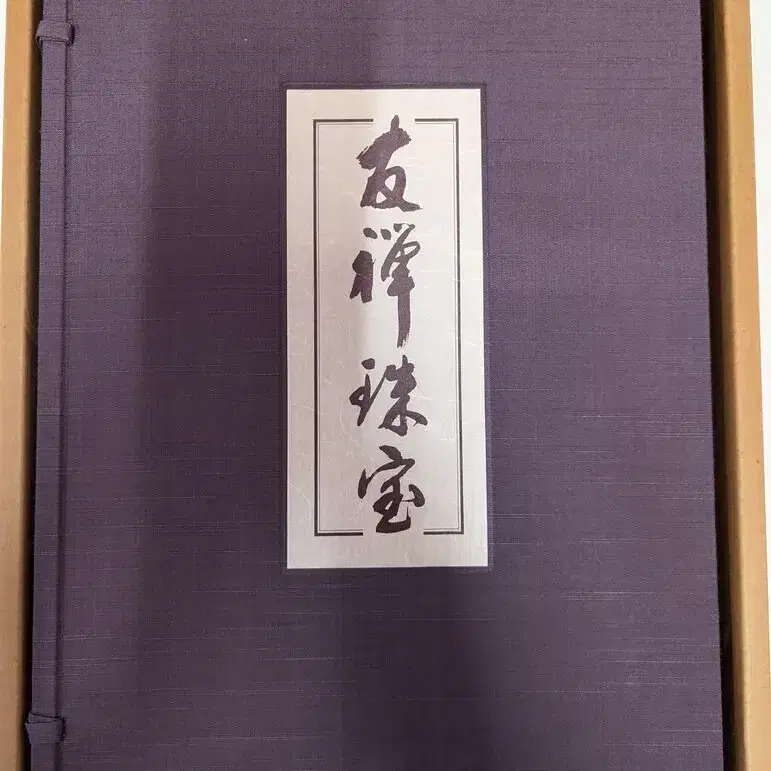 友禅珠宝